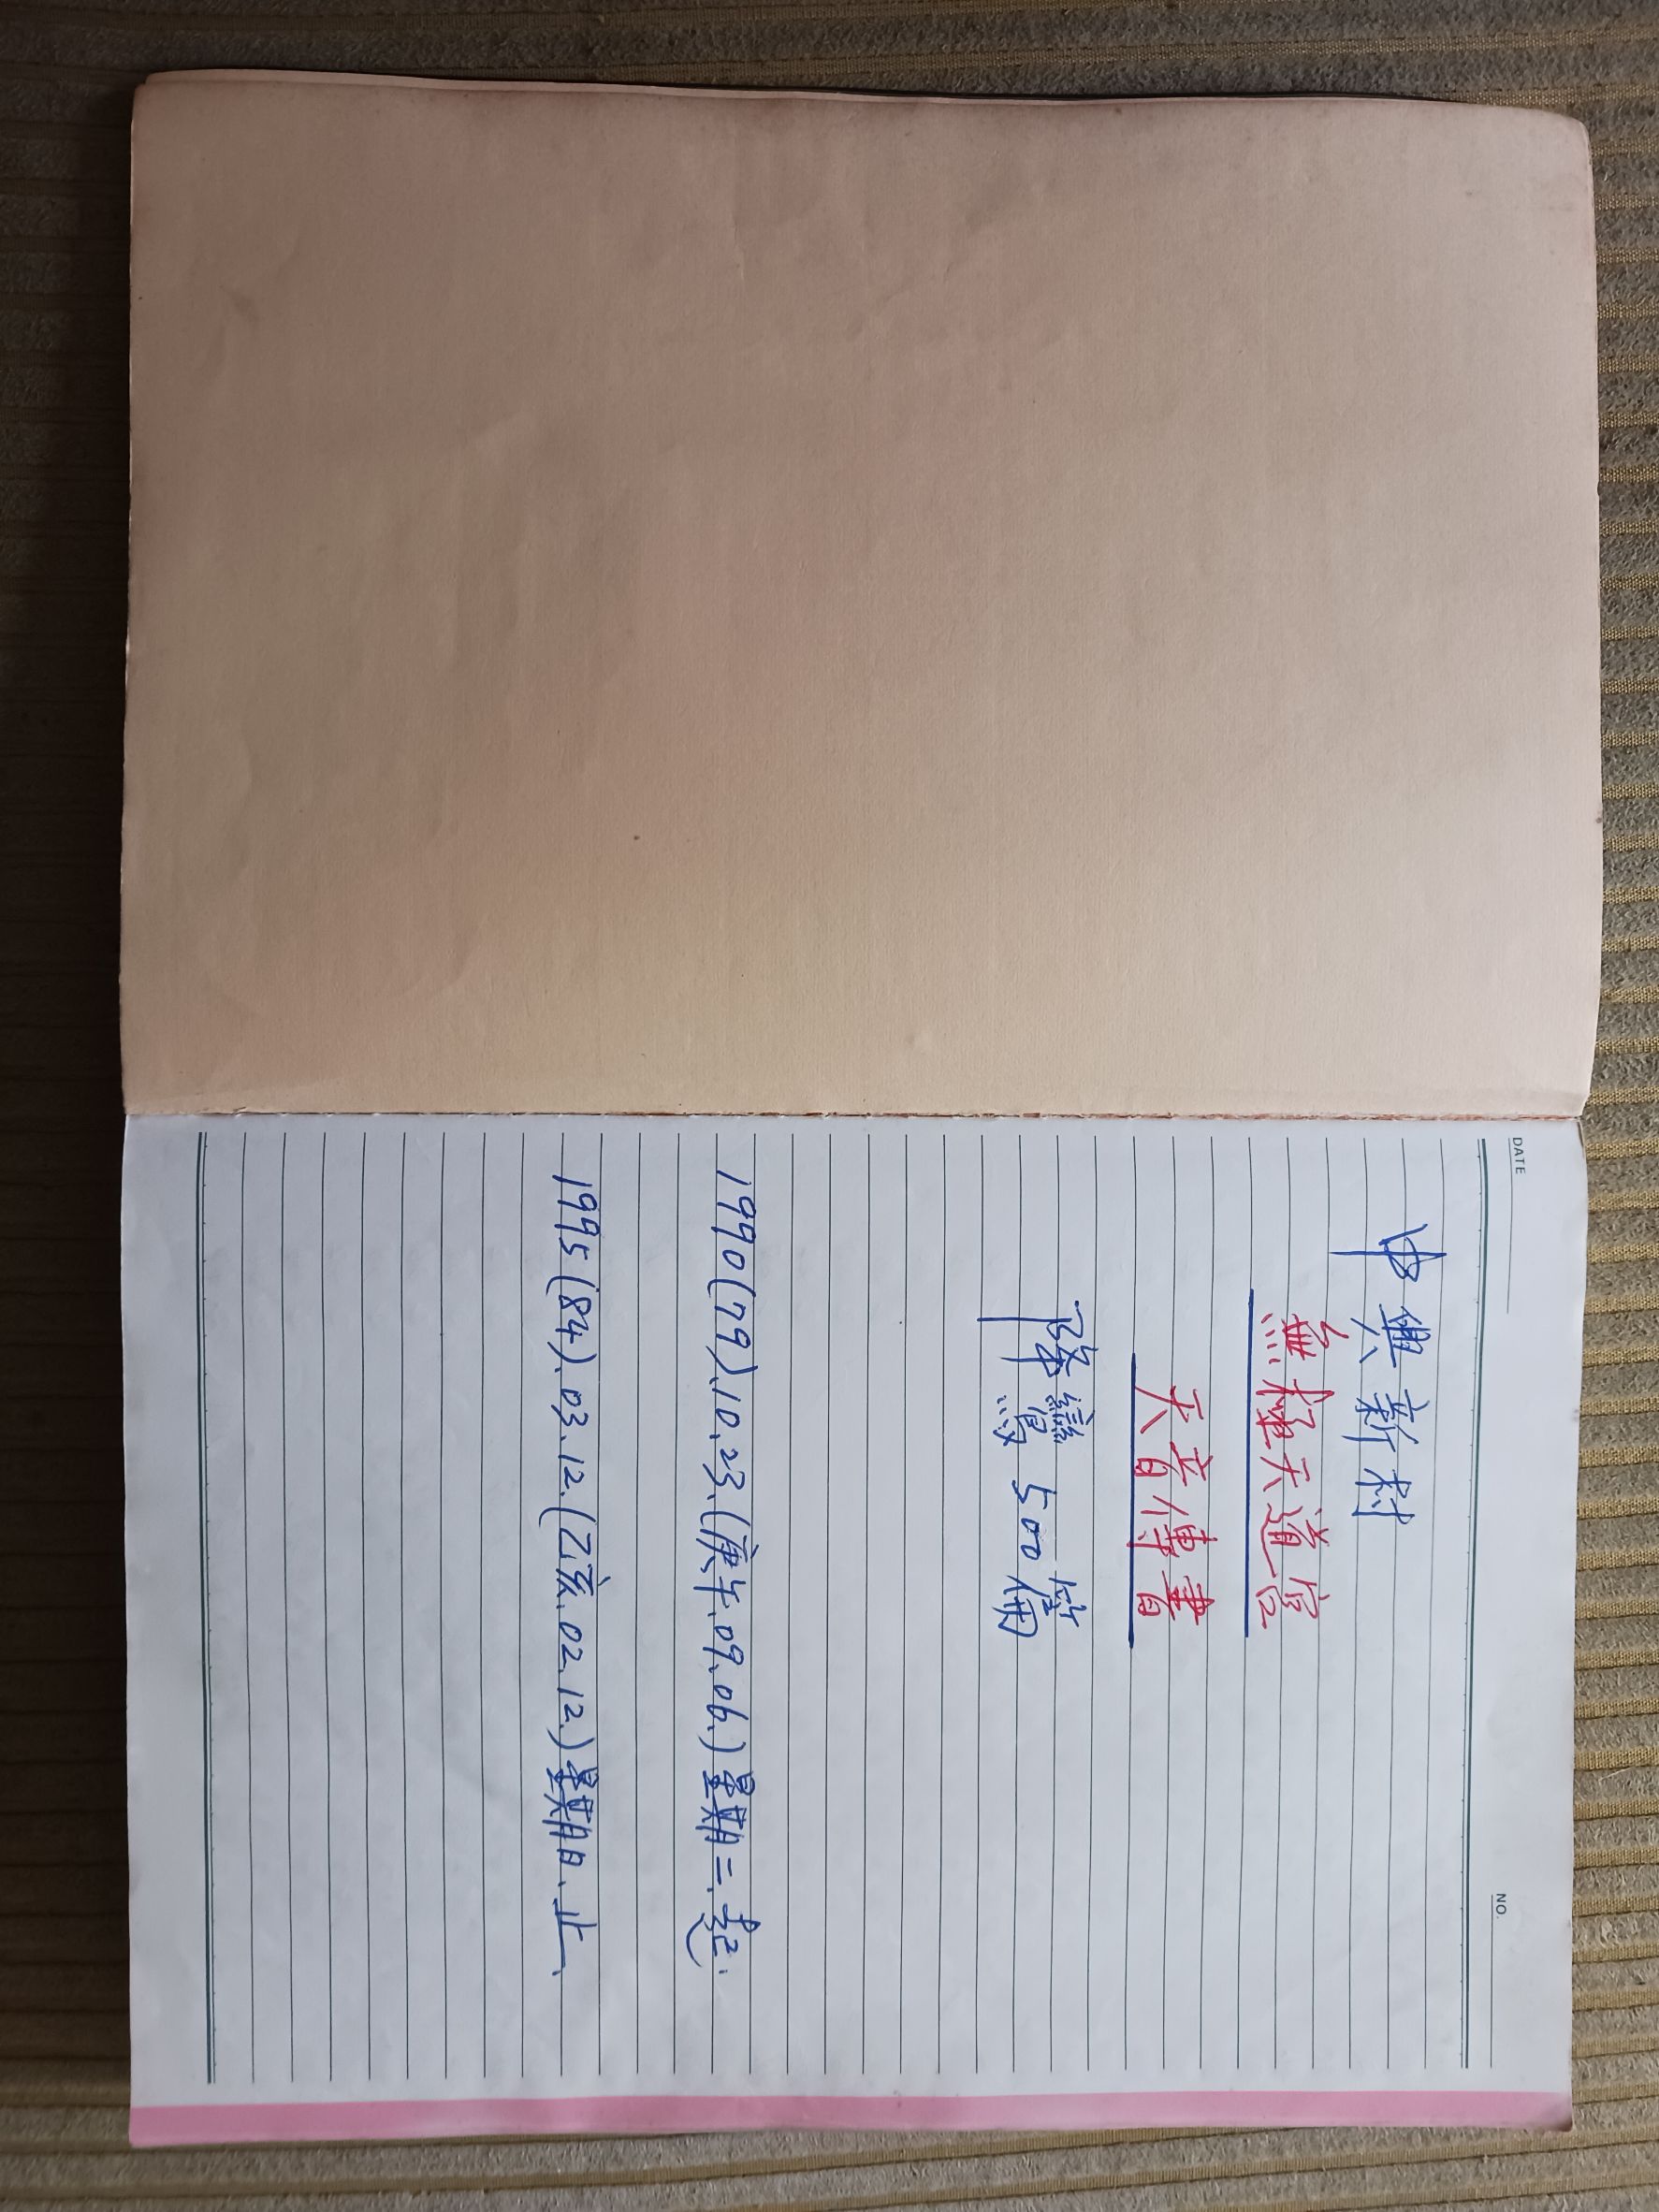 DATE
NO.
中興新村
無極天道宮
天音傳書
降鸞 500 篇
1990(79).10.23.(庚午.09.06.)星期二.起.
1995(84).03.12.(乙亥.02.12.)星期日.止.